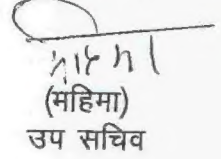 (महिमा)
उप सचिव